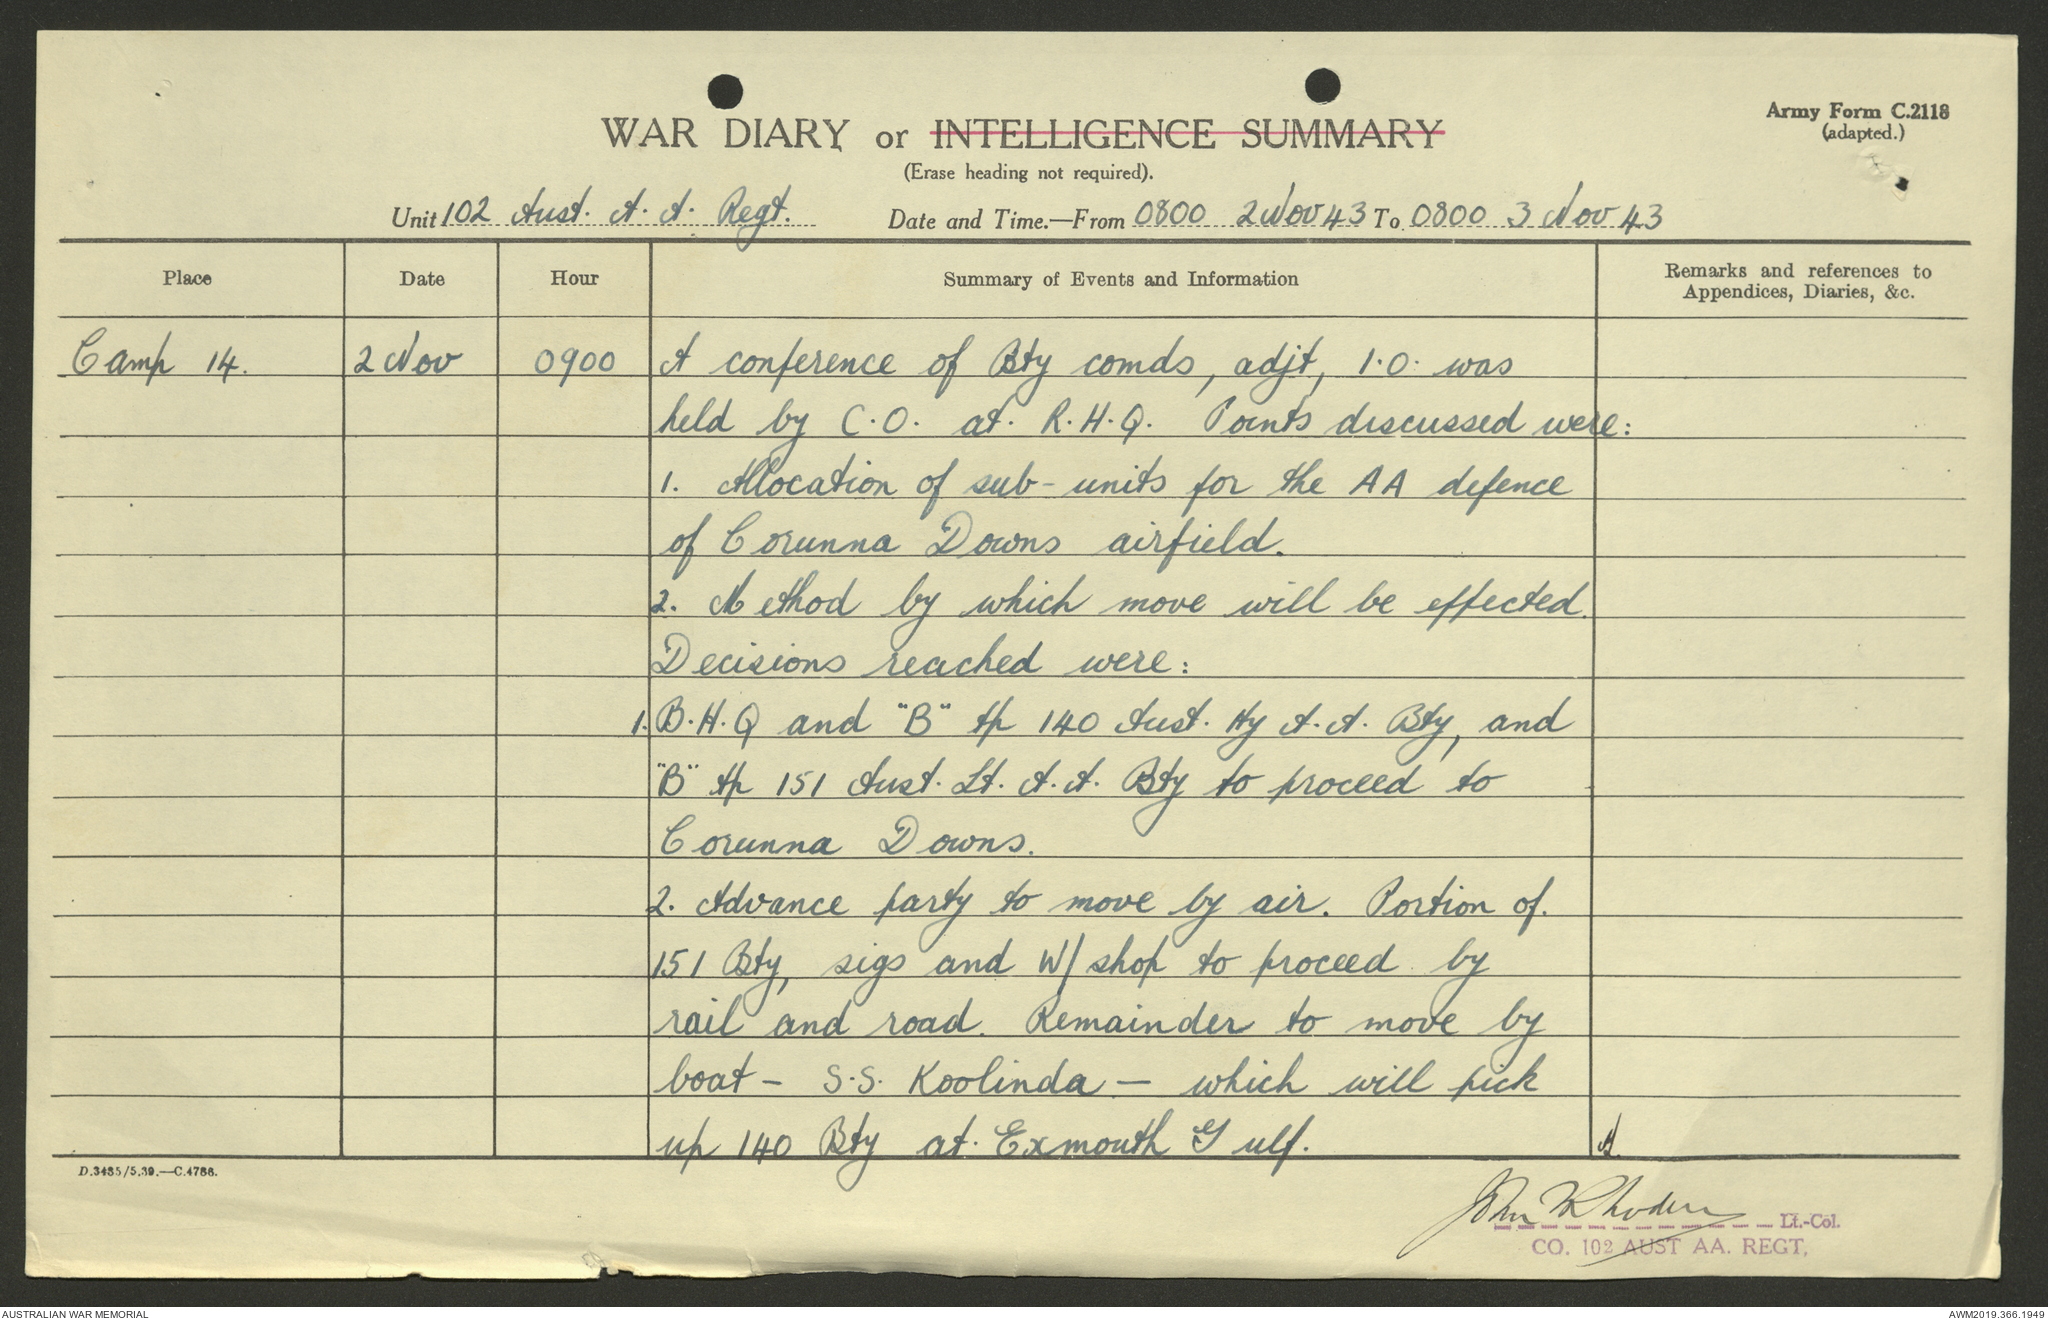 Army Form C.2118
(adapted.)
WAR DIARY or INTELLIGENCE SUMMARY
(Erase heading not required).
Unit 102 Aust. A. A. Regt. Date and Time.—From 0800 2 Nov 43 To 0800 3 Nov 43
Place Date Hour Summary of Events and Information Remarks and references to
Appendices, Diaries, &c.
Camp 14. 2 Nov 0900 A conference of Bty comds, adjt, I.O. was
held by C.O. at R.H.Q. Points discussed were:
1. Allocation of sub-units for the AA defence
of Corunna Downs airfield.
2. Method by which move will be effected.
Decisions reached were:
1. B.H.Q and "B" tp 140 Aust. Hy A.A. Bty, and
"B" tp 151 Aust. Lt. A.A. Bty to proceed to
Corunna Downs.
2. Advance party to move by air. Portion of
151 Bty, sigs and W/shop to proceed by
rail and road. Remainder to move by
boat - S.S. Koolinda - which will pick
up 140 Bty at Exmouth Gulf.
D.3485/5.39.—C.4786.
John Rhoden Lt.-Col.
CO. 102 AUST AA. REGT,
AUSTRALIAN WAR MEMORIAL AWM2019.366.1949